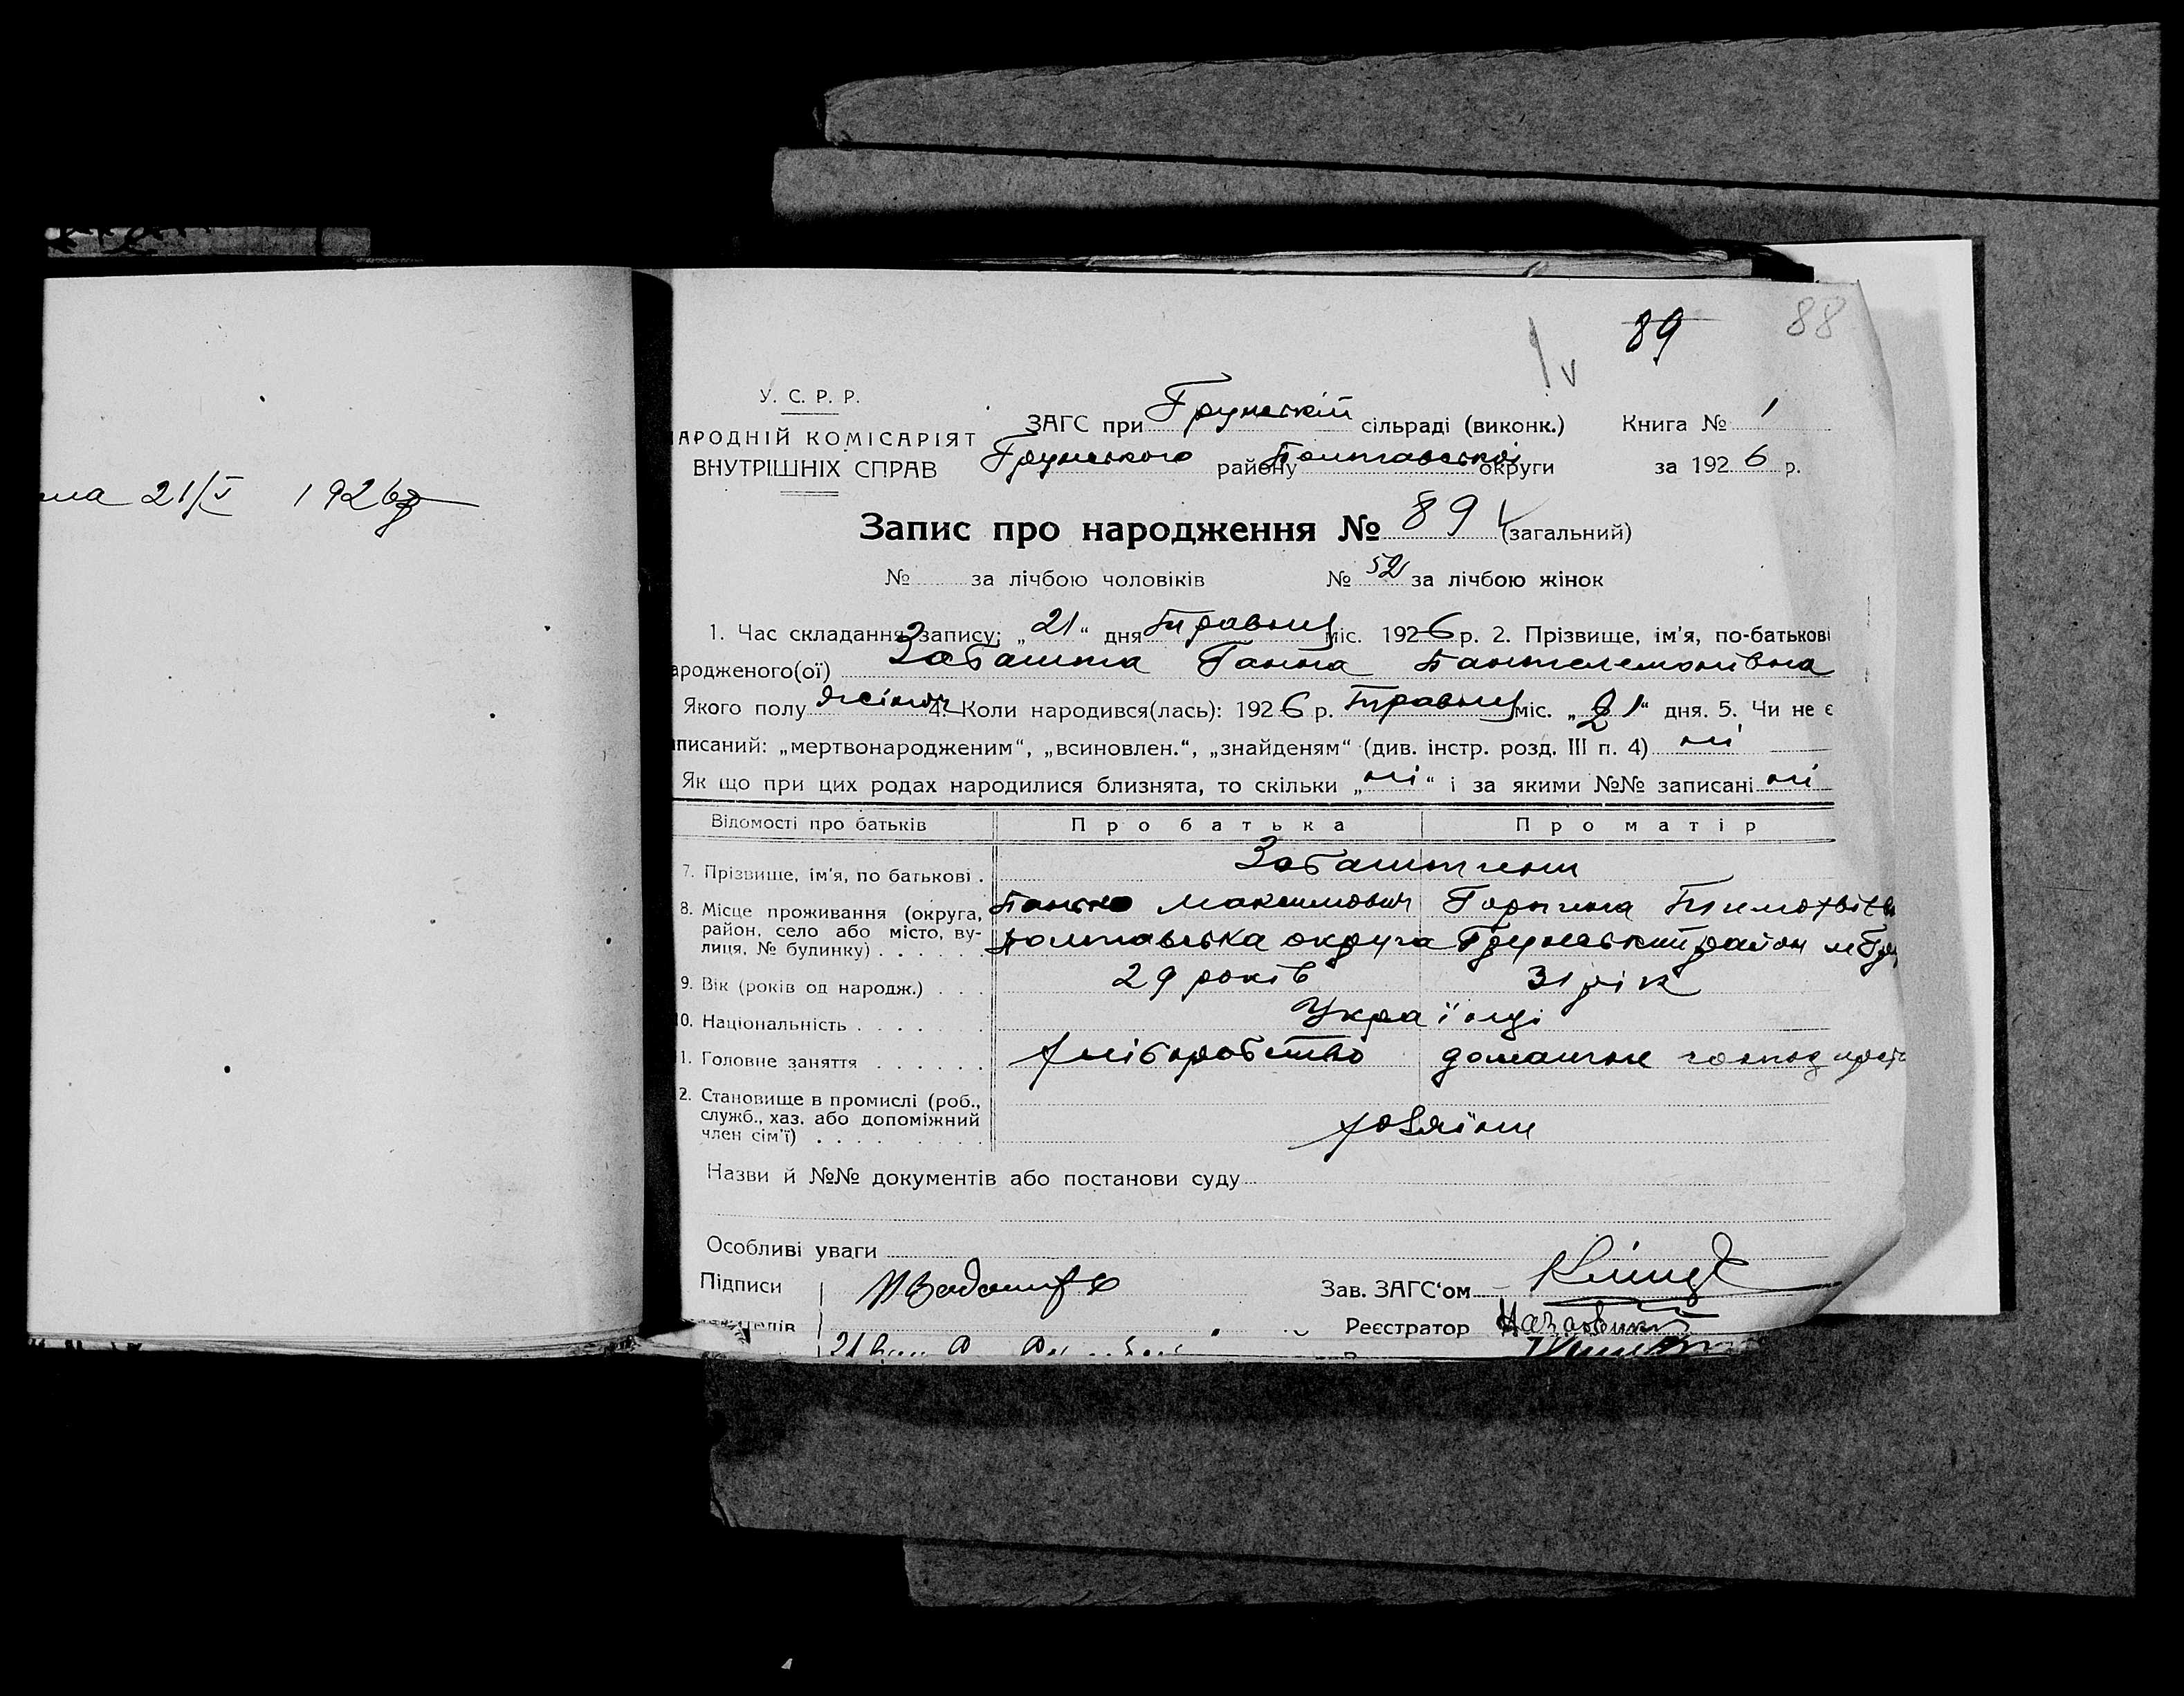 ма 21/V 1926р
89
88
У. С. Р. Р.
АРОДНІЙ КОМІСАРІЯТ
ВНУТРІШНІХ СПРАВ
ЗАГС при Грунській сільраді (виконк.) Книга № 1
Грунського району Полтавської округи за 1926 р.
Запис про народження № 89 (загальний)
№ за лічбою чоловіків № 52 за лічбою жінок
1. Час складання запису: „21“ дня Травня міс. 1926 р. 2. Прізвище, ім'я, по-батькові
ародженого(ої) Забашта Ганна Пантелемонівна
Якого полу жіноч 4. Коли народився(лась): 1926 р. Травня міс. „21“ дня. 5. Чи не є
писаний: „мертвонародженим“, „всиновлен.“, „знайденям“ (див. інстр. розд. III п. 4) ні
Як що при цих родах народилися близнята, то скільки „ні“ і за якими №№ записані ні
Відомості про батьків Про батька Про матір
Забаштини
7. Прізвище, ім'я, по батькові .
Максимович Горпина
8. Місце проживання (округа, район, село або місто, вулиця, № будинку) . . . . . . Полтавська округа Грунський район м Гру
9. Вік (років од народж.) . . . 29 років 31 рік
10. Національність . . . . . Українці
1. Головне заняття . . . . . . хліборобство домашнє господарст
2. Становище в промислі (роб., служб., хаз. або допоміжний член сім'ї) . . . . . . . хозяїни
Назви й №№ документів або постанови суду
Особливі уваги
Підписи Зав. ЗАГС'ом
Реєстратор